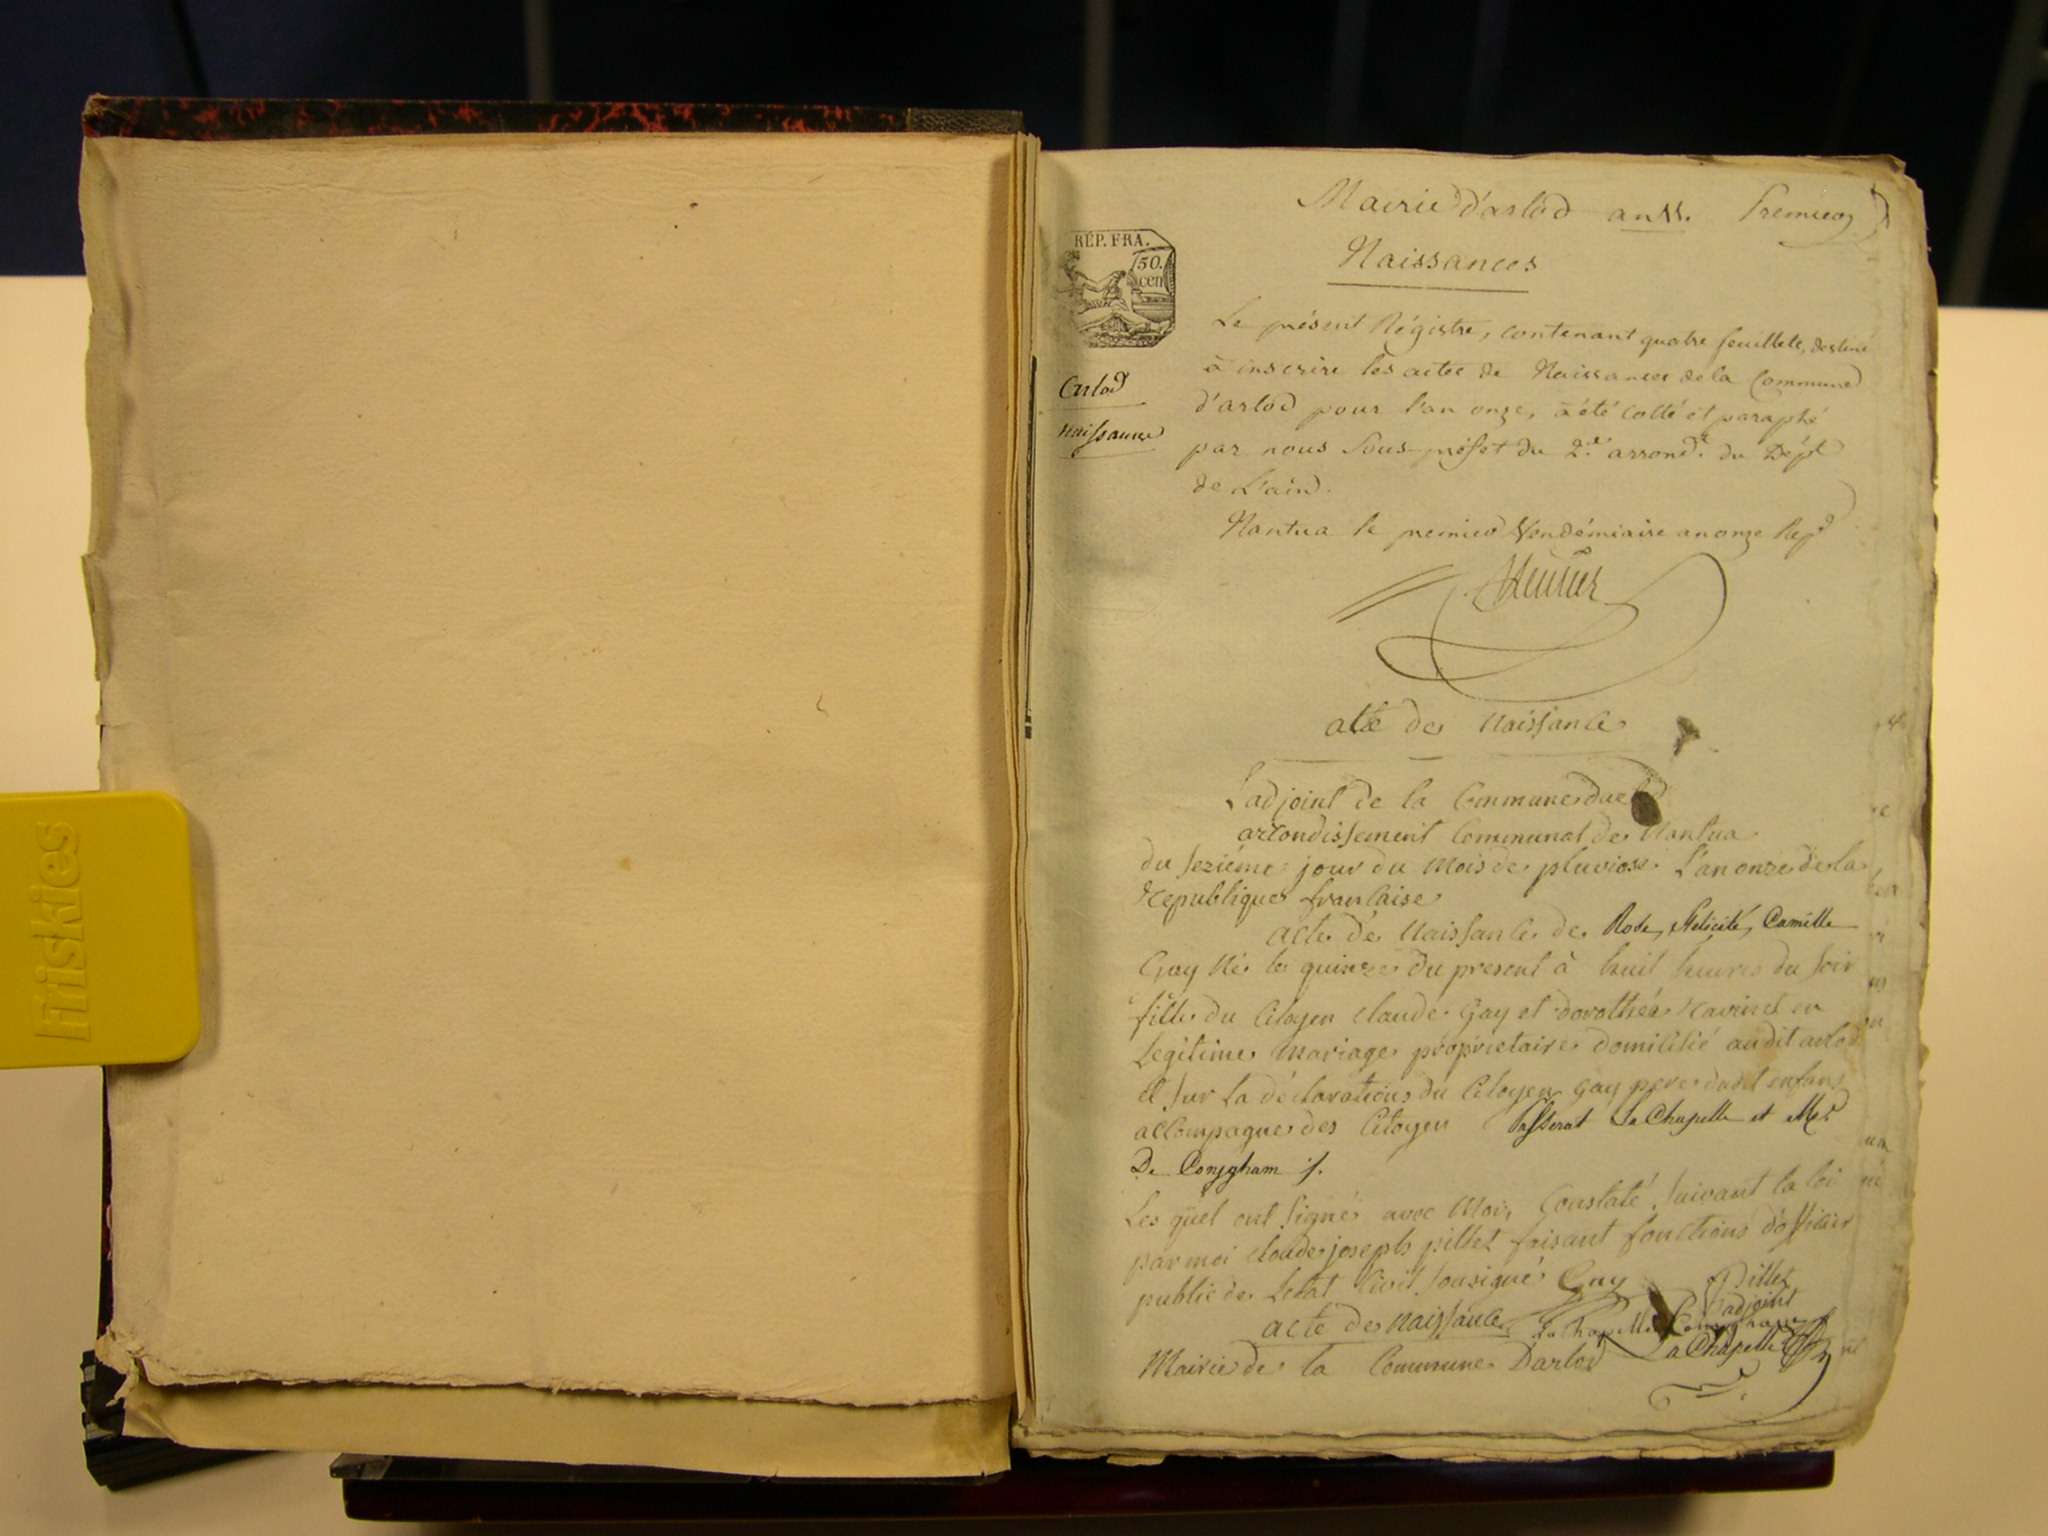 friskies
Mairie d'arlod an 11. Premier
Naissances
RÉP. FRA.
50.
cen
Arlod
naissance
Le présent Régistre, contenant quatre feuillets, destiné
à inscrire les actes de Naissances de la Commune
d'arlod pour l'an onze, a été cotté et paraphé
par nous Sous-préfet du 2.e arrond.t du Dép.t
de L'ain.
Nantua le premier Vendémiaire an onze Rep.
acte de Naissance
L'adjoint de la Commune
arrondissement Communal de Nantua
du sezième jour du Mois de pluviose L'an onze de la
Republique francaise
acte de Naissance de Rose, Félicité, Camille
Gay Né le quinze du present à huit heures du soir
fille du Citoyen Claude Gay et dorothée en
Legitime Mariage propriétaire domicilié audit arlod
et sur la déclarations du Citoyen Gay pere dudit enfans
accompagne des Citoyen Passerat La Chapelle et
De Conygham
Les quel ont signé avec Moi, Constaté suivant la loi
par moi Claude joseph pillet faisant fonctions d'officier
public de Letat Civil sousigné Gay Pillet
adjoint
acte de naissance La Chapelle Conygham
Mairie de la Commune Darlod La Chapelle